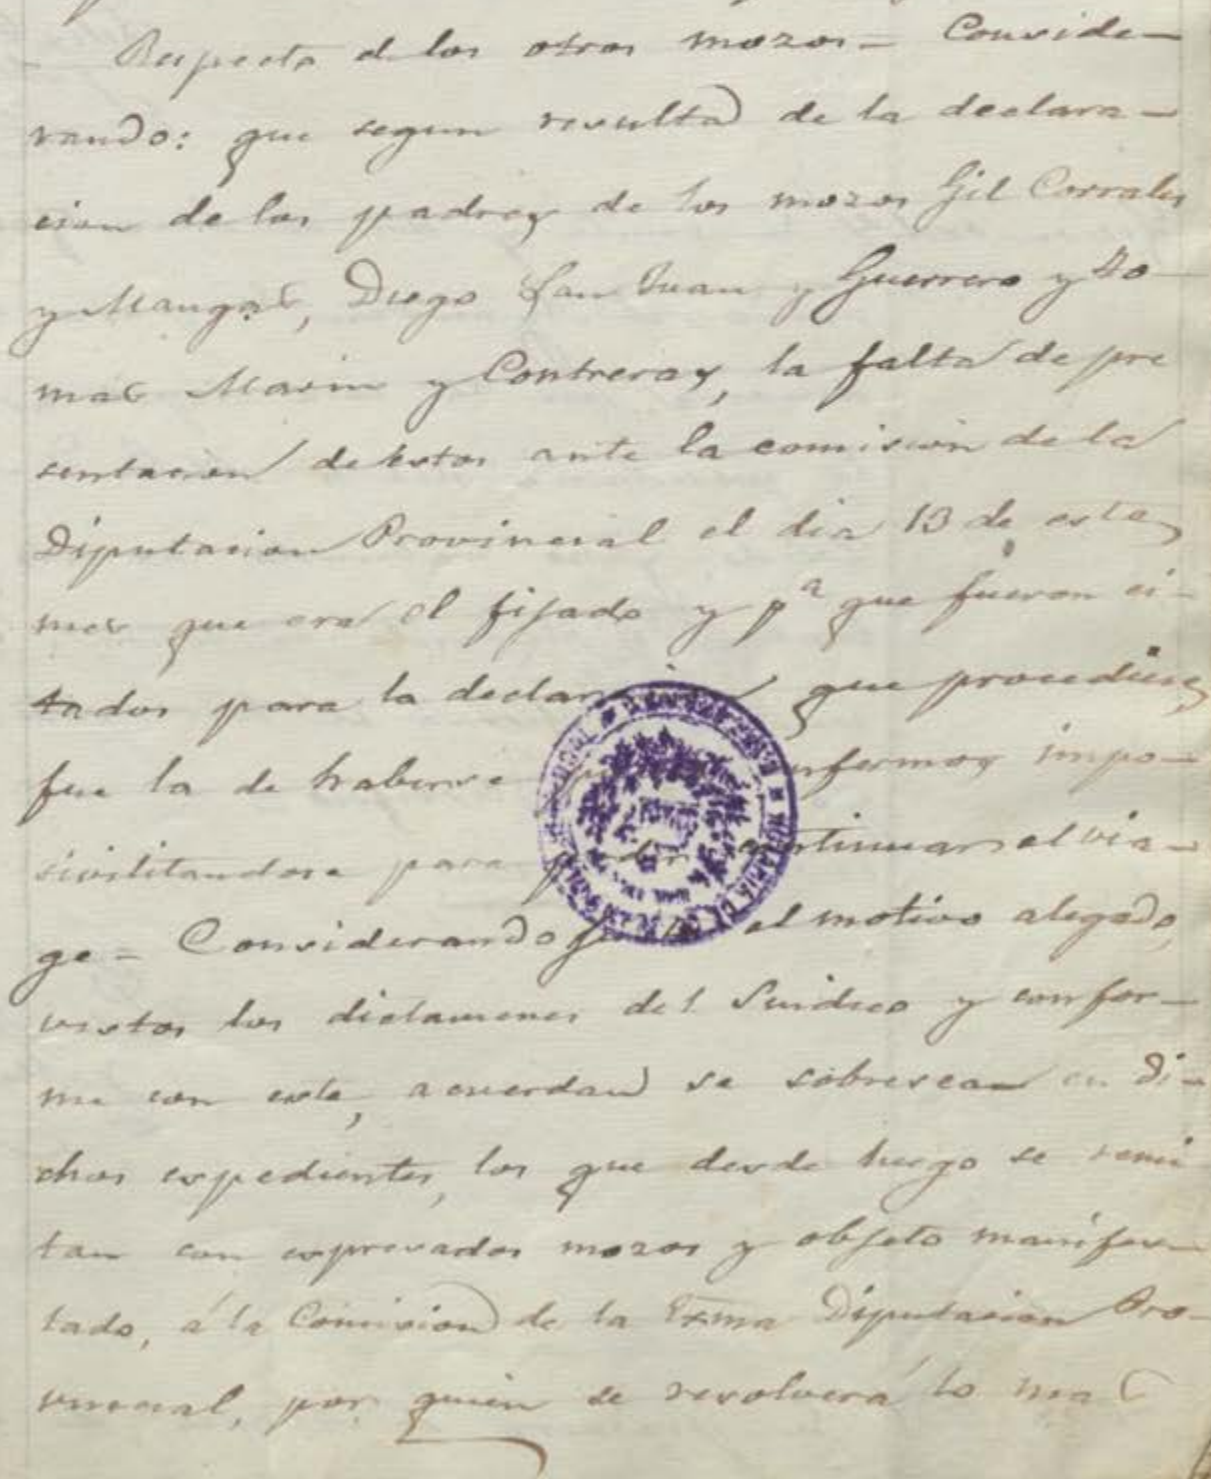 Respecto á los otros mozos = Conside-
rando: que segun resulta de la declara-
cion de los padres de los mozos Gil Corrales
y Mangas, Diego San Juan y Guerrero y To-
mas Marin y Contreras, la falta de pre
sentacion de estos ante la comision de la
Diputacion Provincial el dia 13 de este
mes que era el fijado y pª que fueron ci-
tados para la declaracion que procediese
fue la de haberse enfermos impo-
sivilitandose para poder continuar el via-
ge = Considerando el motivo alegado,
vistos los dictamenes del Sindico y confor-
me con este, acuerdan se sobresean en di-
chos expedientes, los que desde luego se remi
tan con expresados mozos y objeto manifes-
tado, á la Comision de la Exma Diputacion Pro-
vincial, por quien se resolverá lo mas